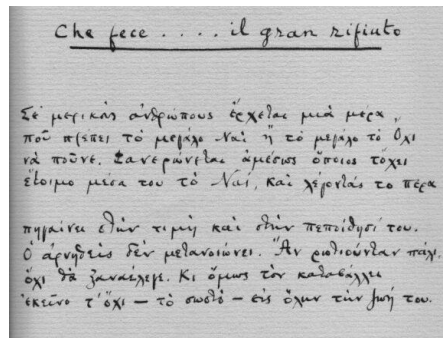 Che fece .... il gran rifiuto
Σέ μερικούς ἀνθρώπους ἔρχεται μιά μέρα
πού πρέπει τό μεγάλο Ναί ἤ τό μεγάλο τό Ὄχι
νά ποῦνε. Φανερώνεται ἀμέσως ὅποιος τὄχει
ἕτοιμο μέσα του τό Ναί, καί λέγοντάς το πέρα
πηγαίνει στήν τιμή καί στήν πεποίθησί του.
Ὁ ἀρνηθείς δέν μετανοιώνει. Ἄν ρωτιοῦνταν πάλι,
ὄχι θά ξαναέλεγε. Κι ὅμως τόν καταβάλλει
ἐκεῖνο τ' ὄχι — τό σωστό — εἰς ὅλην τήν ζωή του.